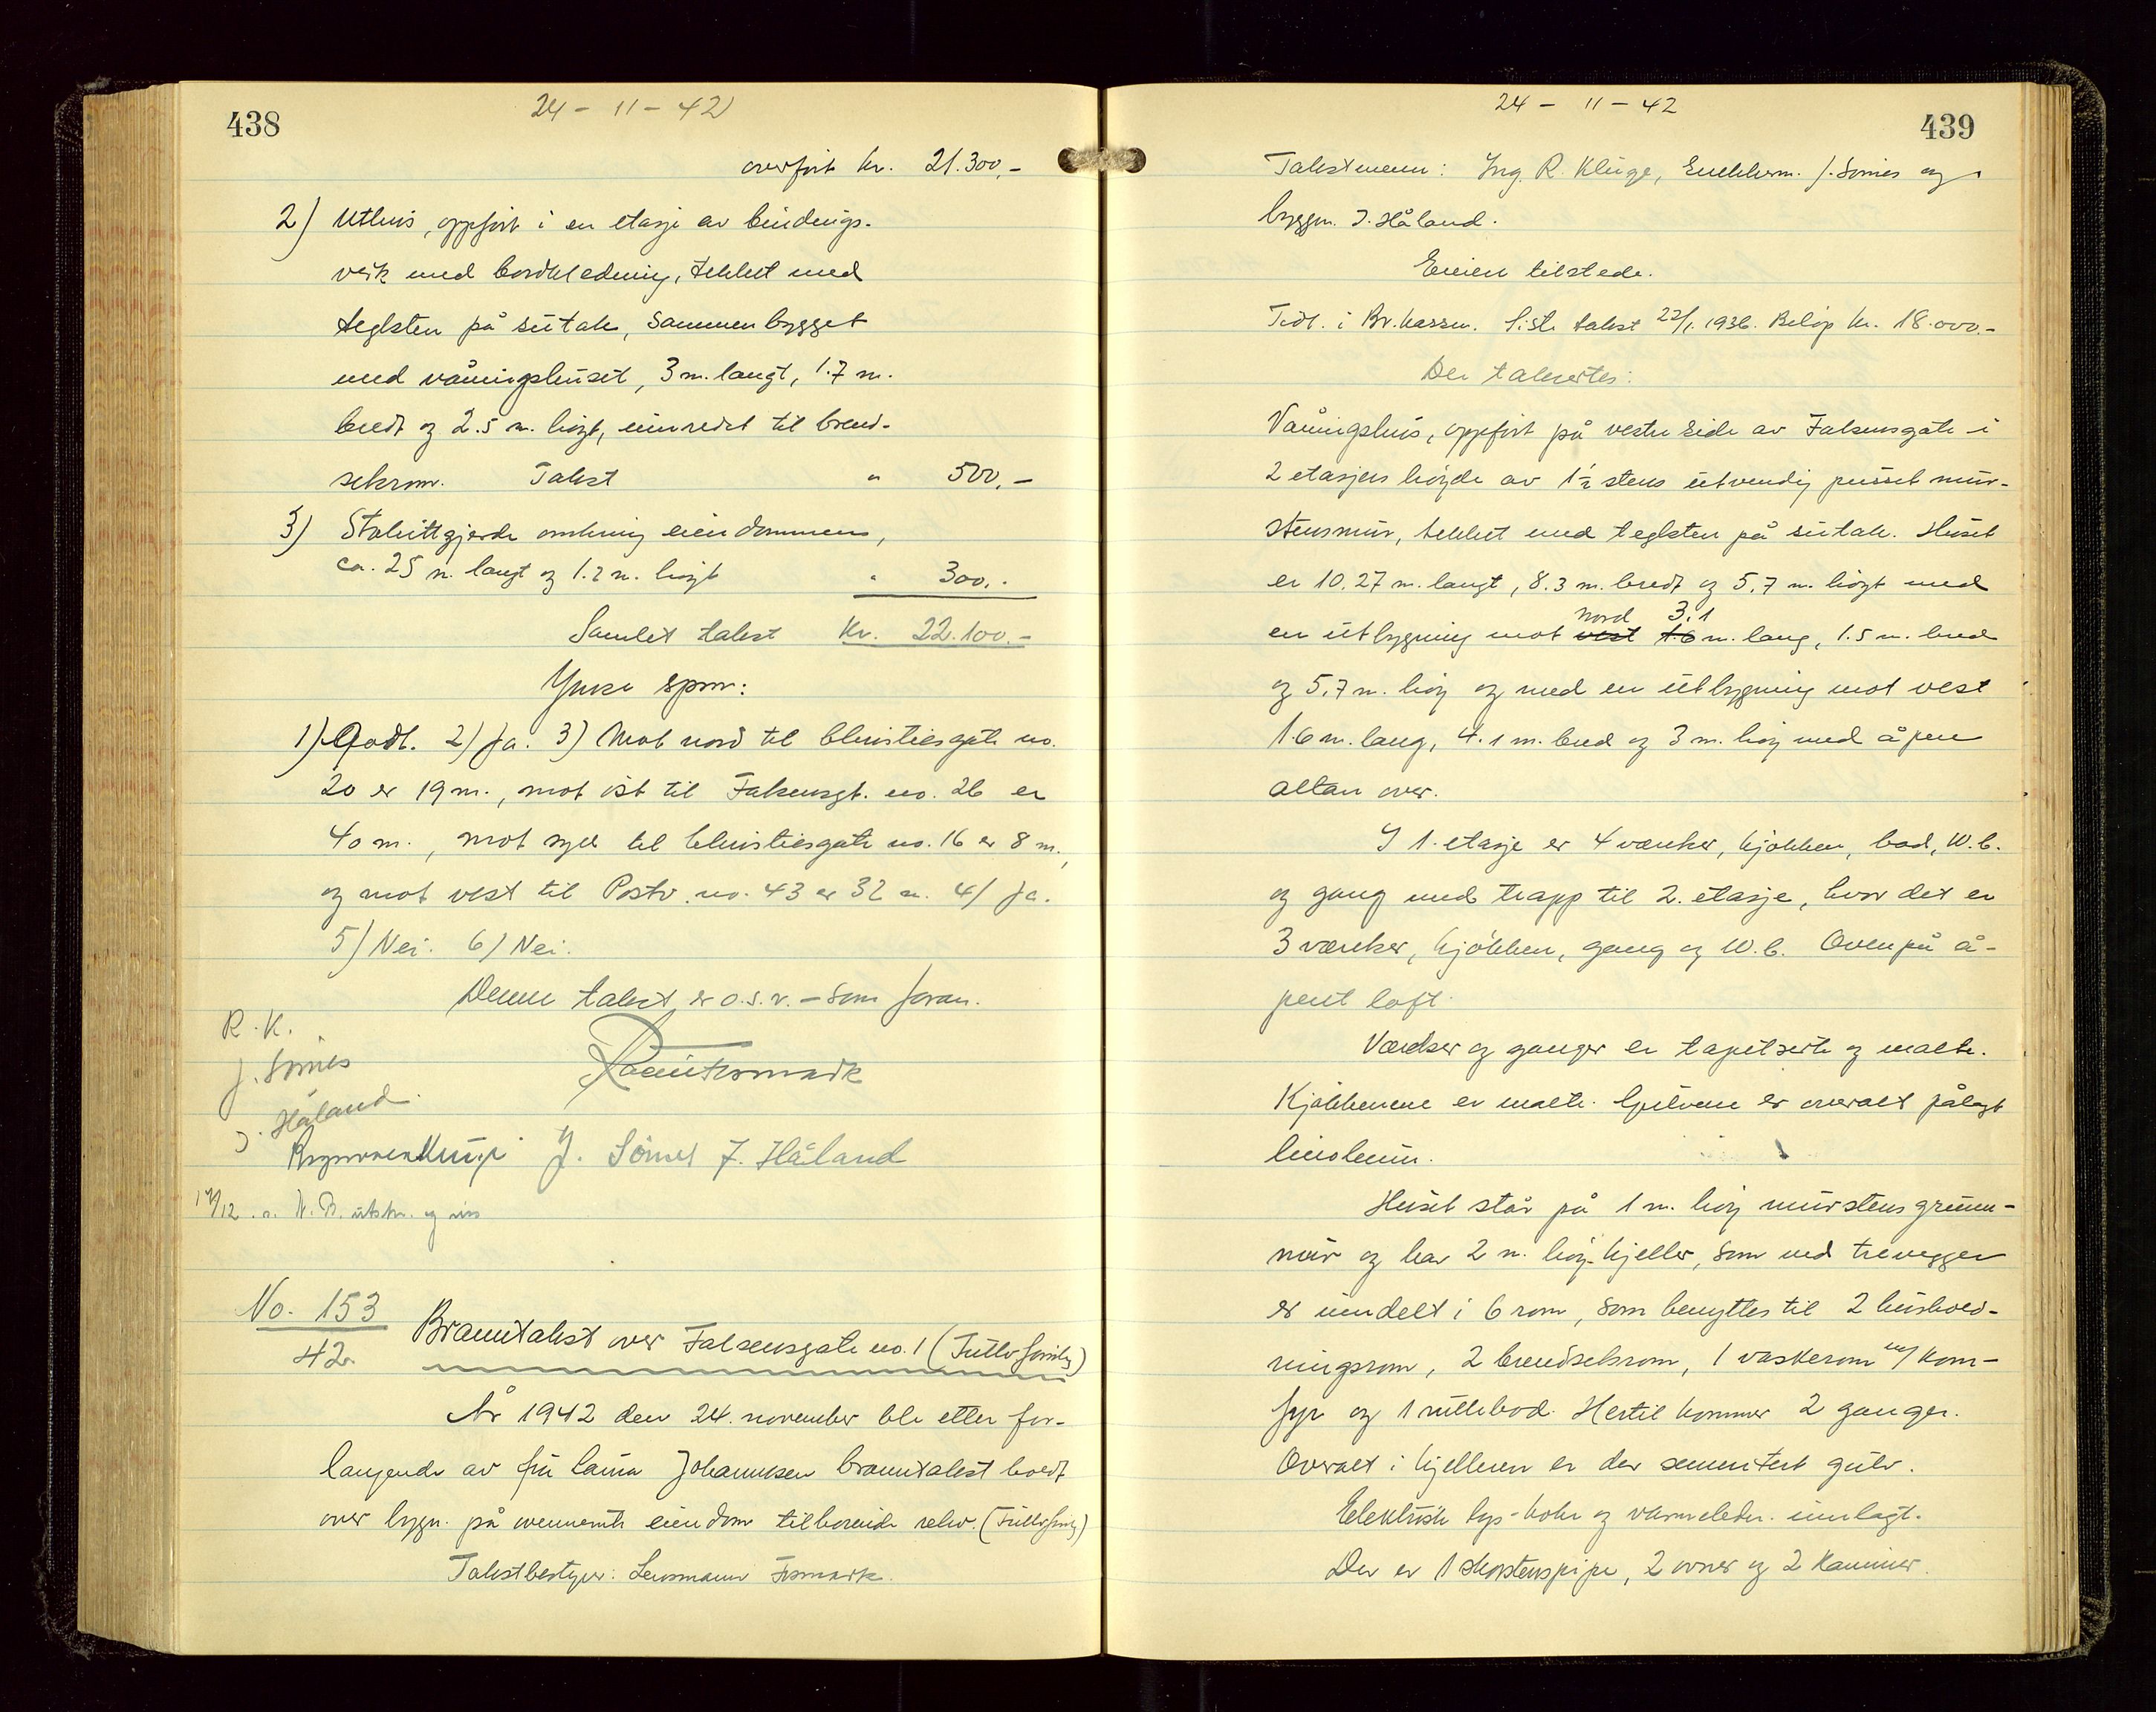 438
24 - 11 - 42
overført kr. 21.300,-
2) Uthus, oppført i en etasje av bindings-
verk med bordkledning, tekket med
teglsten på sutak, sammenbygget
med våningshuset, 3 m. langt, 1.7 m.
bredt og 2.5 m. høgt, innredet til brend-
selsrom. Takst " 500,-
3) Stakittgjerde omkring eiendommen,
ca. 25 m. langt og 1.2 m. høgt " 300.-
Samlet takst kr. 22.100.-
Ymse spm:
1) Godt. 2) Ja. 3) Mot nord til Christiesgate no.
20 er 19 m., mot øst til Falsensgt. no. 26 er
40 m., mot syd til Christiesgate no. 16 er 8 m.,
og mot vest til Postv. no. 43 er 32 m. 4) Ja.
5) Nei. 6) Nei.
Denne takst er o.s.v. - som foran.
R. K.
J. Sømes
J. Håland.
J. Sömes J. Håland
17/12 N. B. utskr. og
No. 153
42.
Branntakst over Falsensgate no. 1
År 1942 den 24. november ble etter for-
langende av fru Laura Johannesen branntakst holdt
over bygn. på ovennevnte eiendom tilhørende rekv.
Takstbestyrer: Lensmann Tismark.
24 - 11 - 42
439
Takstmenn: Ing. R. Kluge, J. Sømes og
byggm. J. Håland.
Eieren tilstede.
Tidl. i Br.kassen. Siste takst 22/1. 1936. Beløp kr. 18.000.-
Der takseertes:
Våningshus, oppført på vestre side av Falsensgate i
2 etasjers høyde av 1½ stens utvendig pusset mur-
stensmur, tekket med teglsten på sutak. Huset
er 10.27 m. langt, 8.3 m. bredt og 5.7 m. høgt med
nord 3.1
en utbygning mot vest 1.6 m. lang, 1.5 m. bred
og 5.7 m. høg og med en utbygning mot vest
1.6 m. lang, 4.1 m. bred og 3 m. høg med åpen
altan over.
I 1. etasje er 4 værelser, kjøkken, bad, W.C.
og gang med trapp til 2. etasje, hvor det er
3 værelser, kjøkken, gang og W.C. Ovenpå å-
pent loft.
Værelser og ganger er tapetserte og malte.
Kjøkkenene er malte. Gulvene er overalt pålagt
linoleum.
Huset står på 1 m. høg murstens grunn-
mur og har 2 m. høg kjeller, som ved trevegger
er inndelt i 6 rom, som benyttes til 2 hushold-
ningsrom, 2 brendselsrom, 1 vaskerom m/ kom-
fyr og 1 rullebod. Hertil kommer 2 ganger.
Overalt i kjelleren er der sementert gulv.
Elektrisk lys- koke og varmeledn. innlagt.
Der er 1 skorstenspipe, 2 ovner og 2 kaminer.